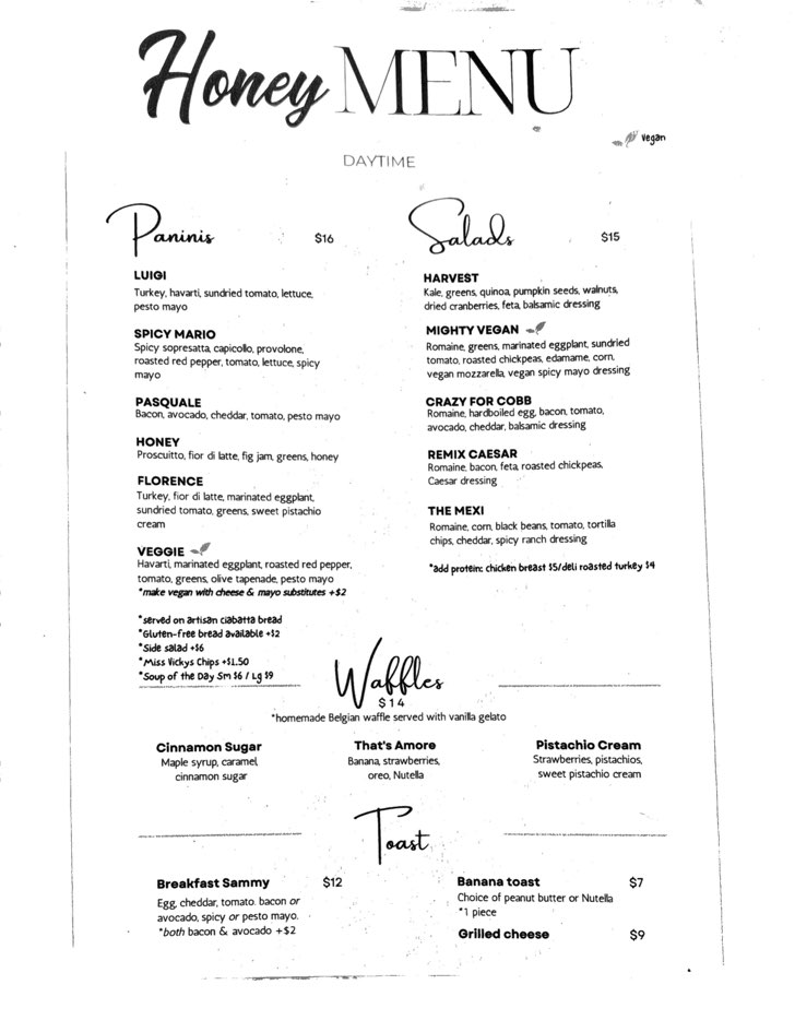 Honey MENU
vegan
DAYTIME
Paninis $16
LUIGI
Turkey, havarti, sundried tomato, lettuce,
pesto mayo
SPICY MARIO
Spicy sopresatta, capicollo, provolone,
roasted red pepper, tomato, lettuce, spicy
mayo
PASQUALE
Bacon, avocado, cheddar, tomato, pesto mayo
HONEY
Proscuitto, fior di latte, fig jam, greens, honey
FLORENCE
Turkey, fior di latte, marinated eggplant,
sundried tomato, greens, sweet pistachio
cream
VEGGIE
Havarti, marinated eggplant, roasted red pepper,
tomato, greens, olive tapenade, pesto mayo
*make vegan with cheese & mayo substitutes +$2
*served on artisan ciabatta bread
*Gluten-free bread available +$2
*Side salad +$6
*Miss Vickys Chips +$1.50
*Soup of the Day Sm $6 / Lg $9
Salads $15
HARVEST
Kale, greens, quinoa, pumpkin seeds, walnuts,
dried cranberries, feta, balsamic dressing
MIGHTY VEGAN
Romaine, greens, marinated eggplant, sundried
tomato, roasted chickpeas, edamame, corn,
vegan mozzarella, vegan spicy mayo dressing
CRAZY FOR COBB
Romaine, hardboiled egg, bacon, tomato,
avocado, cheddar, balsamic dressing
REMIX CAESAR
Romaine, bacon, feta, roasted chickpeas,
Caesar dressing
THE MEXI
Romaine, corn, black beans, tomato, tortilla
chips, cheddar, spicy ranch dressing
*add protein: chicken breast $5/deli roasted turkey $4
Waffles
$14
*homemade Belgian waffle served with vanilla gelato
Cinnamon Sugar
Maple syrup, caramel,
cinnamon sugar
That's Amore
Banana, strawberries,
oreo, Nutella
Pistachio Cream
Strawberries, pistachios,
sweet pistachio cream
Toast
Breakfast Sammy $12
Egg, cheddar, tomato. bacon or
avocado, spicy or pesto mayo.
*both bacon & avocado +$2
Banana toast $7
Choice of peanut butter or Nutella
*1 piece
Grilled cheese $9